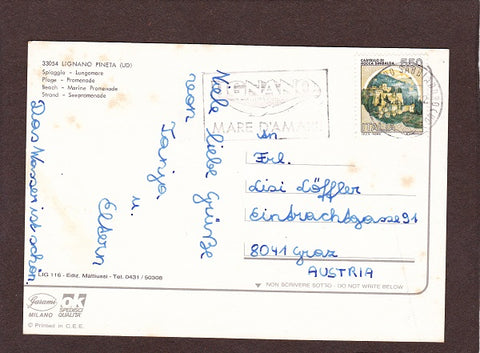 33054 LIGNANO PINETA (UD)
Spiaggia - Lungomare
Plage - Promenade
Beach - Marine Promenade
Strand - Seepromenade
CASTELLO DI
ROCCA SINIBALDA
550
ITALIA
LIGNANO
MARE D'AMARE
Viele liebe Grüße
von
Tanja
u.
Eltern
Das Wasser ist schön
An
Frl.
Lisi Löffler
Eintrachtgasse 91
8041 Graz
AUSTRIA
LIG 116 - Ediz. Mattiussi - Tel. 0431 / 50306
NON SCRIVERE SOTTO - DO NOT WRITE BELOW
Garami
MILANO
OK
SPEDISCI
QUALITÀ
© Printed in C.E.E.